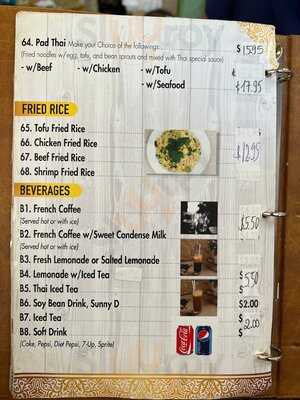 64. Pad Thai Make your Choice of the followings: $15.95
(Fried noodles w/egg, tofu, and bean sprouts and mixed with Thai special sauce)
- w/Beef - w/Chicken - w/Tofu
- w/Seafood $17.95
FRIED RICE
65. Tofu Fried Rice
66. Chicken Fried Rice
67. Beef Fried Rice $12.95
68. Shrimp Fried Rice
BEVERAGES
B1. French Coffee
(Served hot or ice) $5.50
B2. French Coffee w/Sweet Condense Milk
(Served hot or ice)
B3. Fresh Lemonade or Salted Lemonade
B4. Lemonade w/Iced Tea $5.50
B5. Thai Iced Tea $
B6. Soy Bean Drink, Sunny D $2.00
B7. Iced Tea $2.00
B8. Soft Drink $
(Coke, Pepsi, Diet Pepsi, 7-Up, Sprite)
Coca-Cola